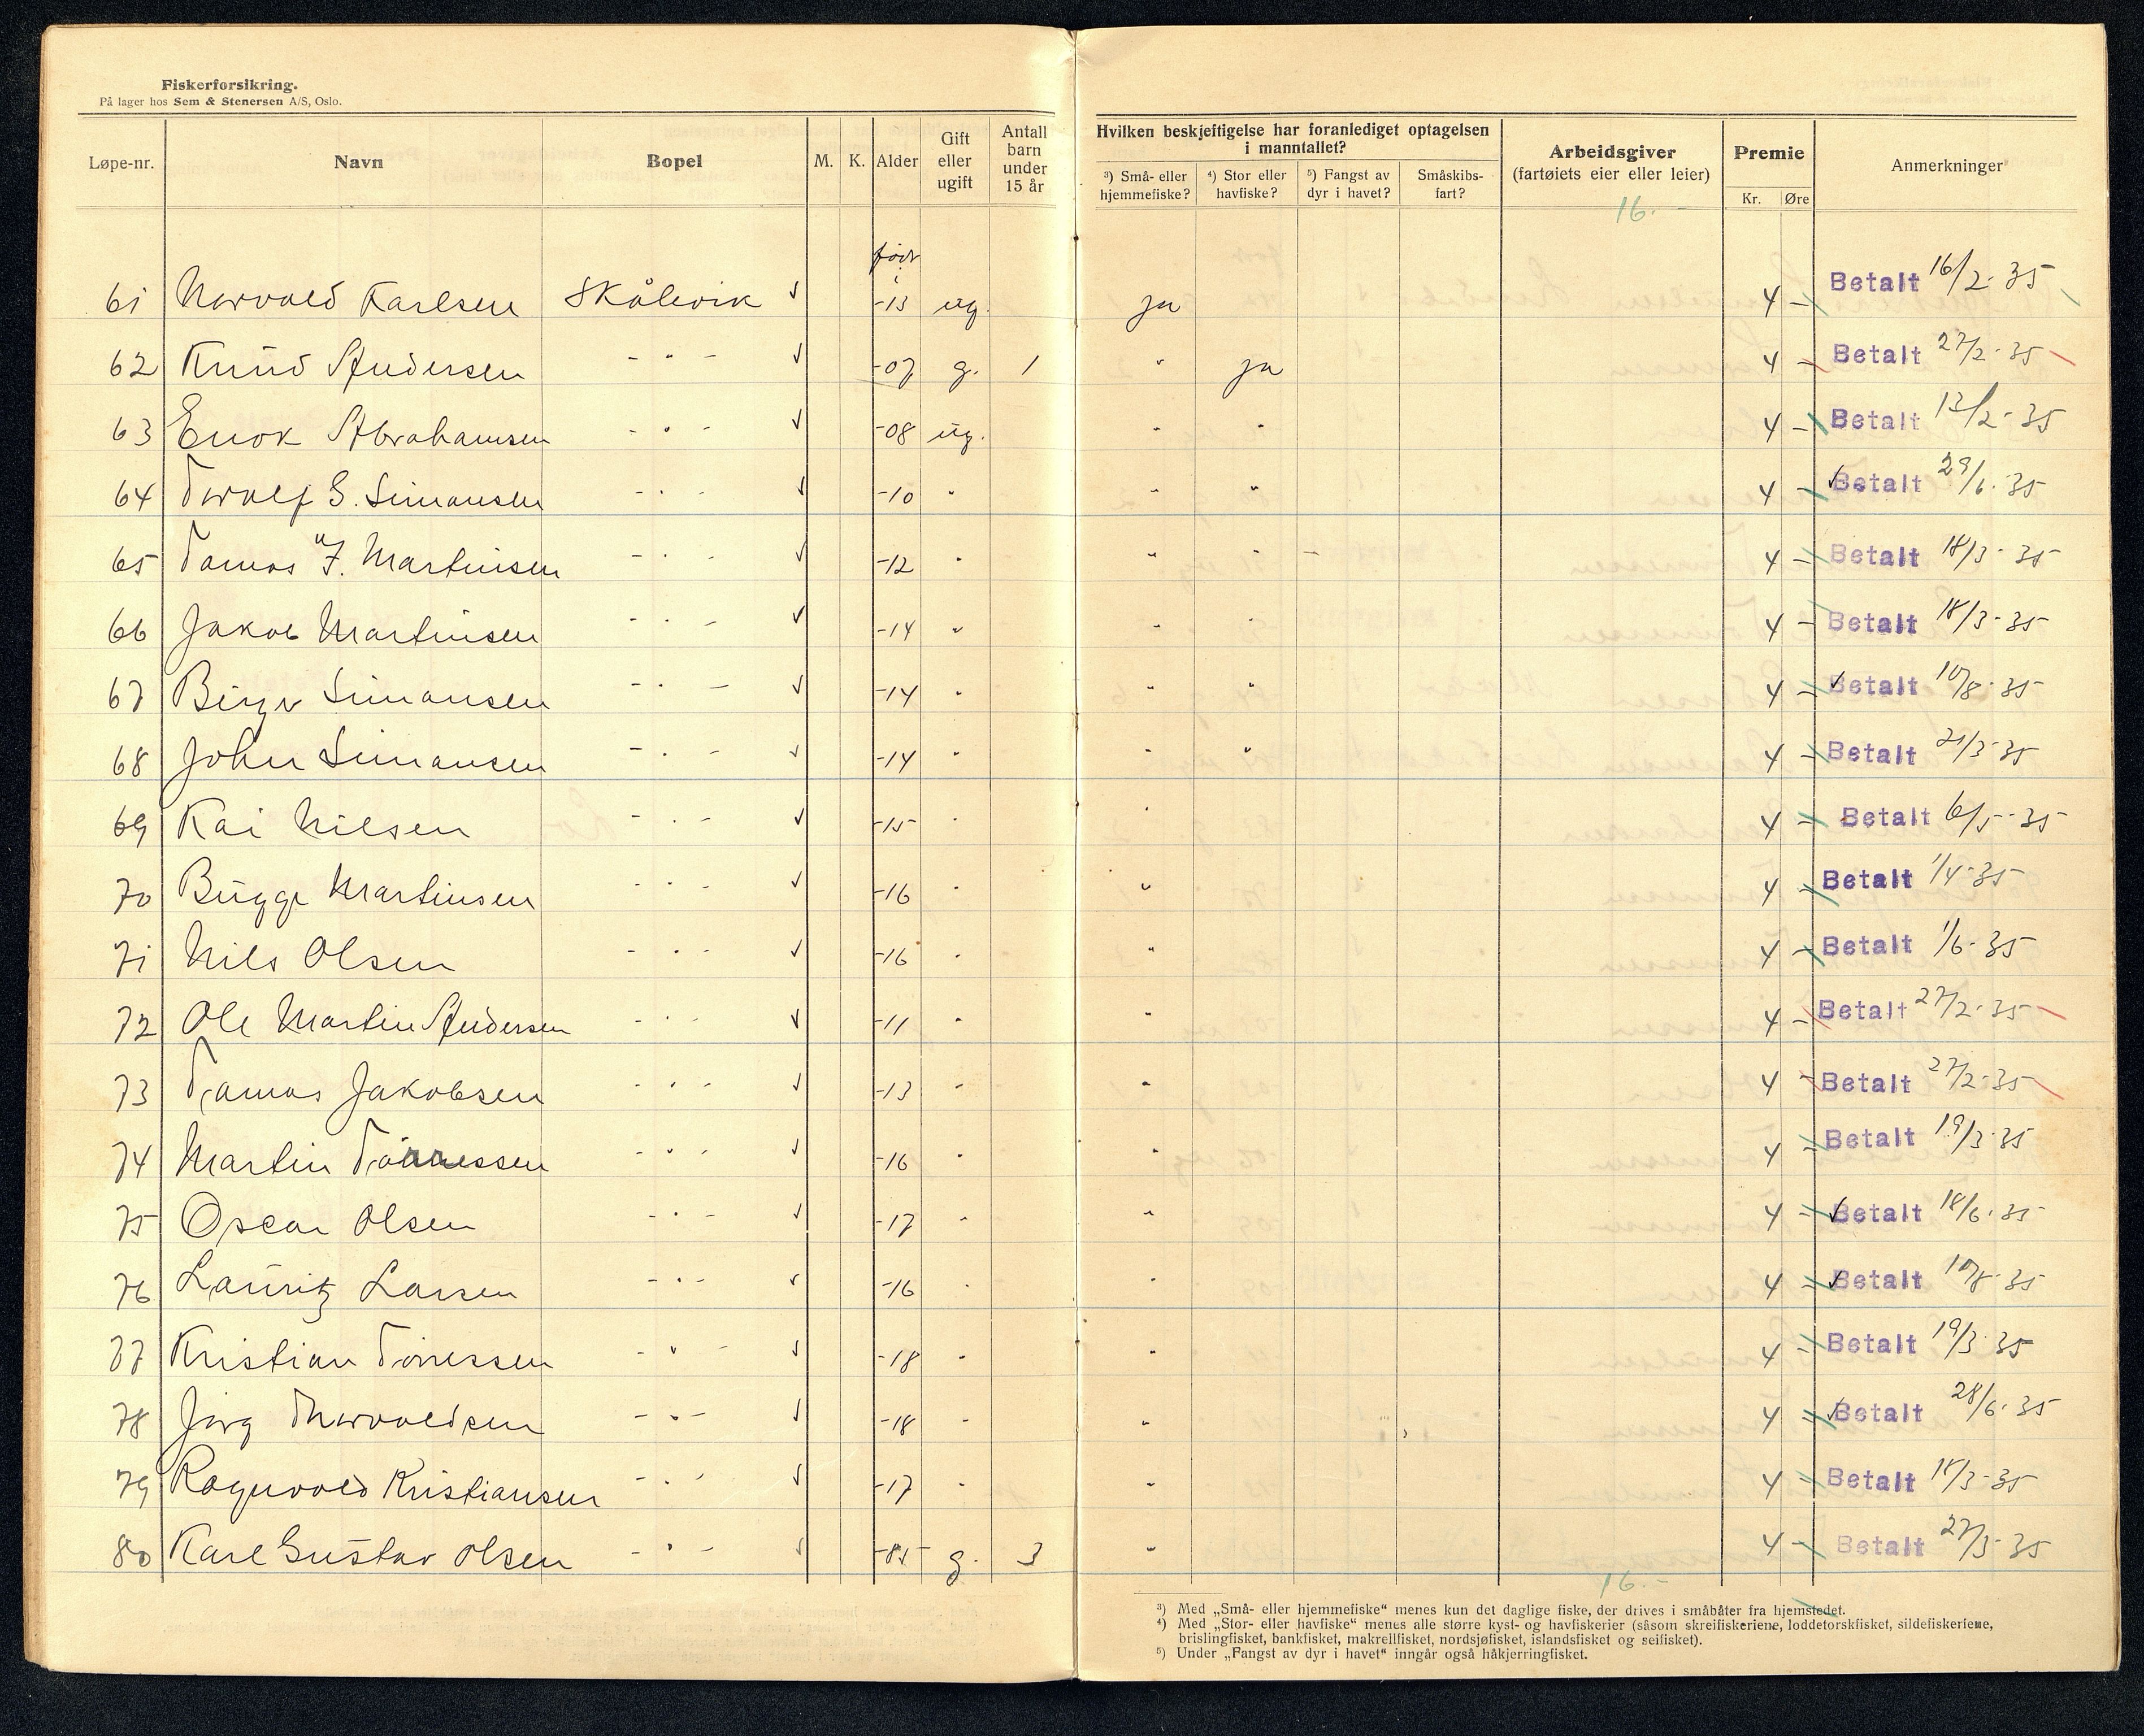 Fiskerforsikring.
På lager hos Sem & Stenersen A/S, Oslo.
Løpe-nr. Navn Bopel M. K. Alder Gift eller ugift Antall barn under 15 år
Hvilken beskjeftigelse har foranlediget optagelsen i manntallet?
³) Små- eller hjemmefiske? ⁴) Stor eller havfiske? ⁵) Fangst av dyr i havet? Småskibs-fart?
Arbeidsgiver (fartøiets eier eller leier) Premie Kr. Øre Anmerkninger
16.-
født i
61 Norvald Karlsen Skålevik √ -13 ug. ja 4 - Betalt 16/2-35
62 Knud Andersen - " - √ -07 g. 1 " ja 4 - Betalt 27/2-35
63 Enok Abrahamsen - " - √ -08 ug. " " 4 - Betalt 12/2-35
64 Torolf G. Simonsen - " - √ -10 " " " 4 - Betalt 29/6-35
65 Tomas J. Martinsen - " - √ -12 " " " - 4 - Betalt 18/3-35
66 Jakob Martinsen - " - √ -14 " " " 4 - Betalt 18/3-35
67 Birger Simonsen - " - √ -14 " " " 4 - Betalt 10/8-35
68 John Simonsen - " - √ -14 " " " 4 - Betalt 21/3-35
69 Kai Nilsen - " - √ -15 " " 4 - Betalt 6/5-35
70 Bugge Martinsen - " - √ -16 " " 4 - Betalt 1/4-35
71 Nils Olsen - " - √ -16 " " 4 - Betalt 1/6-35
72 Ole Martin Andersen - " - √ -11 " " 4 - Betalt 27/2-35
73 Tomas Jakobsen - " - √ -13 " " 4 - Betalt 27/2-35
74 Martin Tönnessen - " - √ -16 " " 4 - Betalt 19/3-35
75 Oscar Olsen - " - √ -17 " " 4 - Betalt 18/6-35
76 Lauritz Larsen - " - √ -16 " " 4 - Betalt 10/8-35
77 Kristian Tönessen - " - √ -18 " " 4 - Betalt 19/3-35
78 Jörg Thorvaldsen - " - √ -18 " " 4 - Betalt 28/6-35
79 Ragnvald Kristiansen - " - √ -17 " " 4 - Betalt 18/3-35
80 Karl Gustav Olsen - " - √ -85 g. 3 " 4 - Betalt 27/3-35
16.-
³) Med „Små- eller hjemmefiske“ menes kun det daglige fiske, der drives i småbåter fra hjemstedet.
⁴) Med „Stor- eller havfiske“ menes alle større kyst- og havfiskerier (såsom skreifiskeriene, loddetorskfisket, sildefiskeriene,
brislingfisket, bankfisket, makrellfisket, nordsjøfisket, islandsfisket og seifisket).
⁵) Under „Fangst av dyr i havet“ inngår også håkjerringfisket.